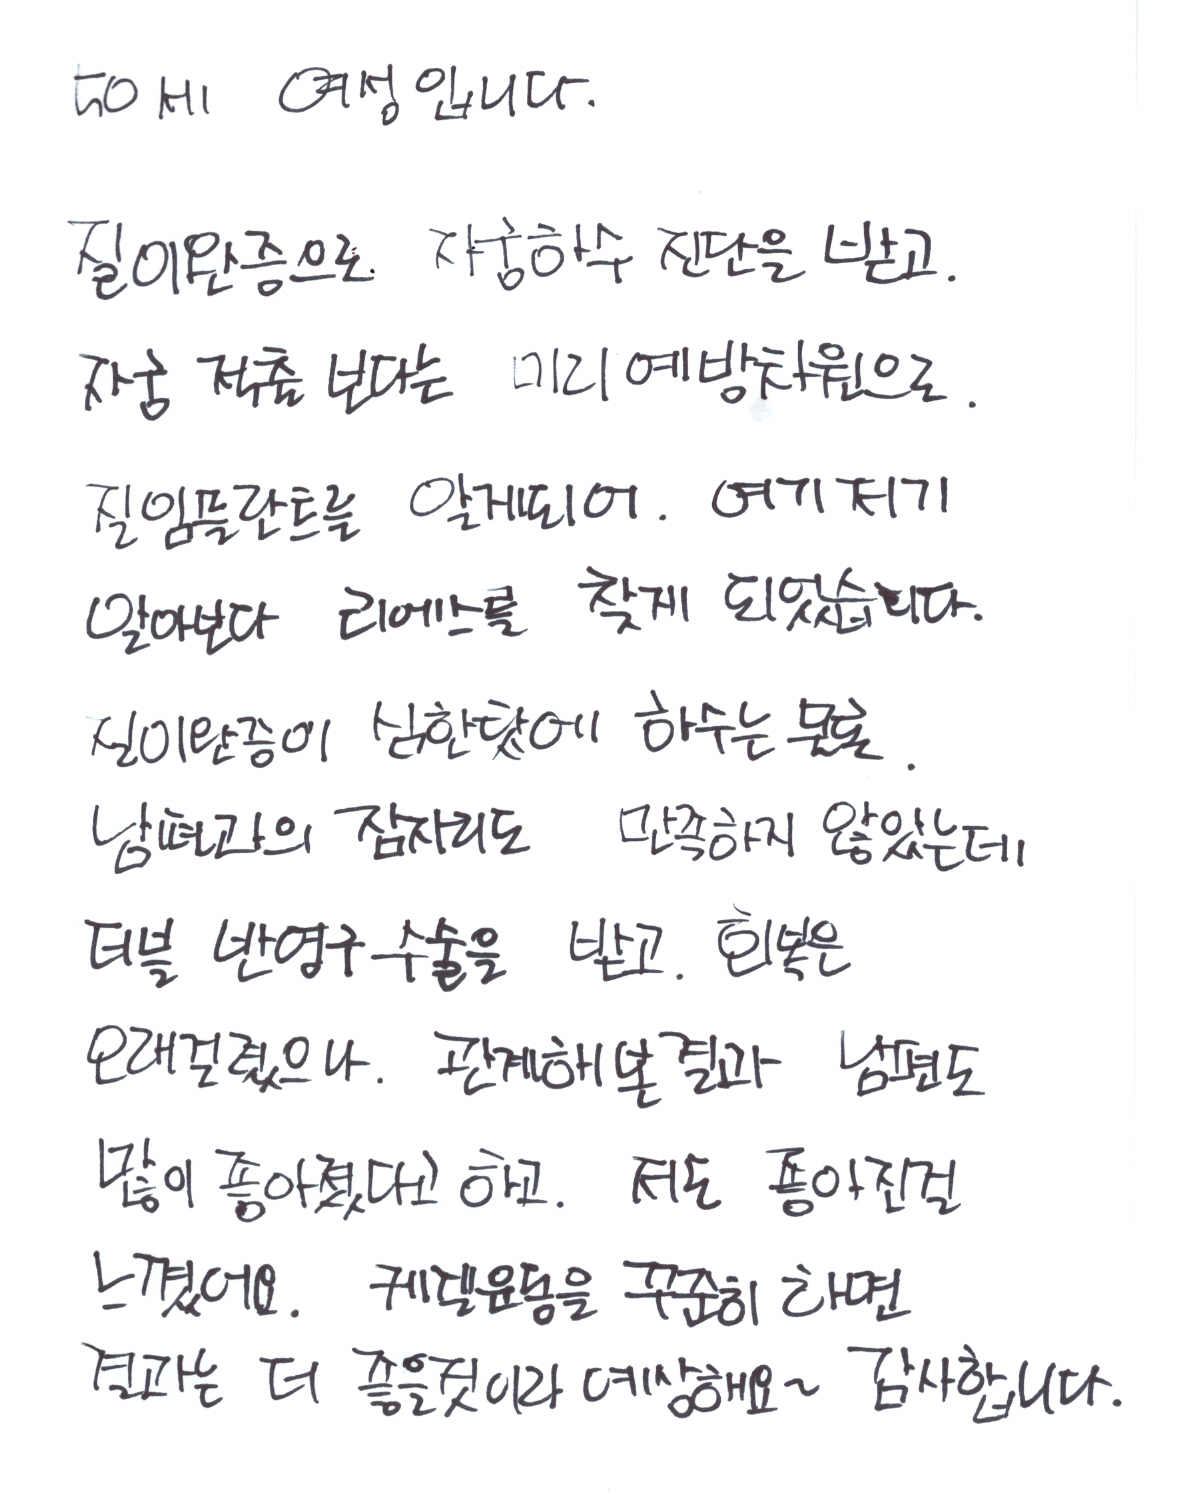 50세 여성입니다.
질이완증으로 자궁하수 진단을 받고.
자궁 적출 보다는 미리 예방차원으로.
질임플란트를 알게되어. 여기저기
알아보다 리에스를 찾게 되었습니다.
질이완증이 심한탓에 하수는 물론.
남편과의 잠자리도 만족하지 않았는데
더블 반영구 수술을 받고. 회복은
오래걸렸으나. 관계해본결과 남편도
많이 좋아졌다고 하고. 저도 좋아진걸
느꼈어요. 케겔운동을 꾸준히 하면
결과는 더 좋을것이라 예상해요~ 감사합니다.